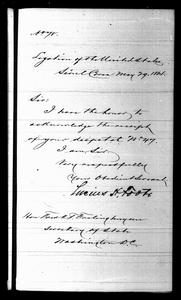 Legation of the United States
Seoul Corea May 29. 188
Sir:
I have the honor to
acknowledge the receipt
of your despatch No
I am, Sir,
Very respectfully
Your Obedient Servant,
Lucius H. Foote
Hon. Fred'k T. Frelinghuysen
Secretary of State
Washington D.C.